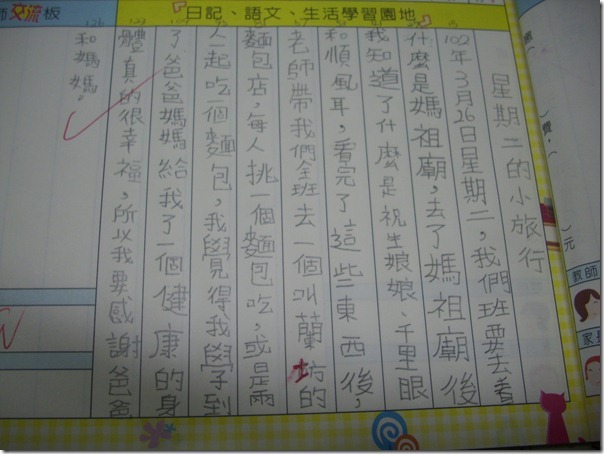 日記、語文、生活學習園地
星期二的小旅行
102年3月26日星期二，我們班要去看
什麼是媽祖廟，去了媽祖廟後
我知道了什麼是祝生娘娘、千里眼
和順風耳，看完了這些東西後，
老師帶我們全班去一個叫蘭坊的
麵包店，每人挑一個麵包吃，或是兩
人一起吃一個麵包，我學得我學到
了爸爸媽媽給我了一個健康的身
體真的很幸福，所以我要感謝爸爸
和媽媽。
師交流板
元
教師